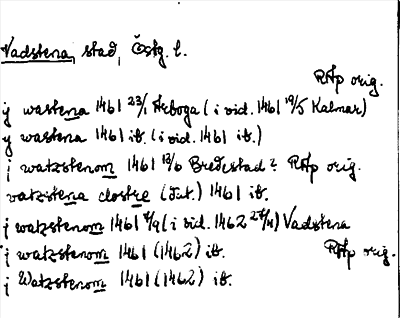 Vadstena, stad, Östg. l.
RAp orig.
j wastena 1461 23/1 Arboga (i vid. 1461 19/5 Kalmar)
y wastena 1461 ib. (i vid. 1461 ib.)
j watzstenom 1461 13/6 Bredestad? RAp orig.
vatzstena clostre (dat.) 1461 ib.
j watzstenom 1461 4/9 (i vid. 1462 27/4) Vadstena
j watzstenom 1461 (1462) ib. RAp orig.
j Watzstenom 1461 (1462) ib.